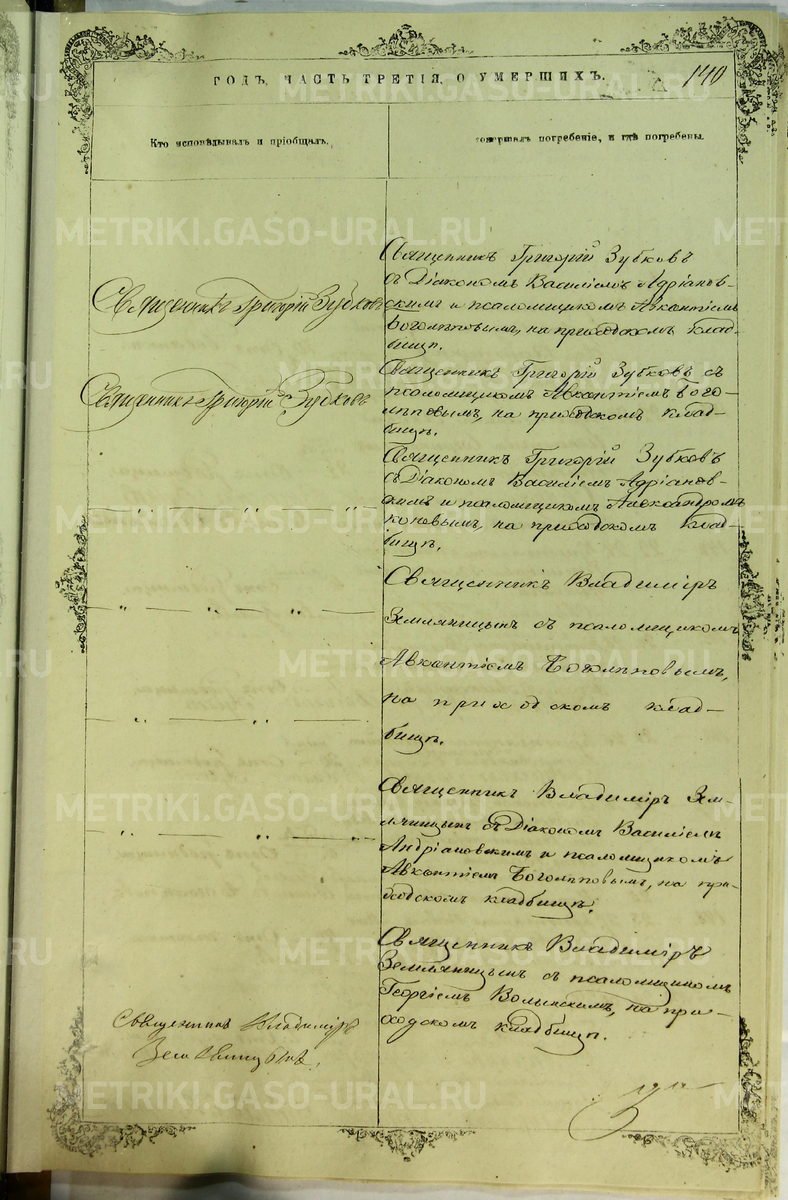 140
ГОДЪ, ЧАСТЬ ТРЕТІЯ, О УМЕРШИХЪ.
Кто исповѣдывалъ и пріобщалъ.
совершалъ погребеніе, и гдѣ погребены.
Священникъ Григорій Зубковъ
Священникъ Григорій Зубковъ
съ Діакономъ Василіемъ Адріанов-
скимъ и псаломщикомъ Авксентіемъ
Боголѣповымъ, на приходскомъ клад-
бищѣ.
Священникъ Григорій Зубковъ
Священникъ Григорій Зубковъ съ
псаломщикомъ Авксентіемъ Бого-
лѣповымъ, на приходскомъ клад-
бищѣ.
Священникъ Григорій Зубковъ
съ Діакономъ Василіемъ Адріанов-
скимъ и псаломщикомъ Александромъ
на приходскомъ клад-
бищѣ.
Священникъ Владиміръ
Земляницынъ съ псаломщикомъ
Авксентіемъ Боголѣповымъ,
на приходскомъ клад-
бищѣ.
Священникъ Владиміръ Зем-
ляницынъ съ Діакономъ Василіемъ
Андріановскимъ и псаломщикомъ
Авксентіемъ Боголѣповымъ, на при-
ходскомъ кладбищѣ.
Священникъ Владиміръ
Земляницынъ съ псаломщикомъ
Георгіемъ Волынскимъ, на при-
ходскомъ кладбищѣ.
Священникъ Владиміръ
Земляницынъ.
METRIKI.GASO-URAL.RU